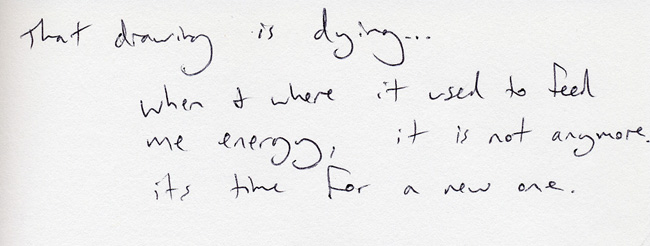 That drawing is dying...
when & where it used to feed
me energy, it is not anymore.
its time for a new one.